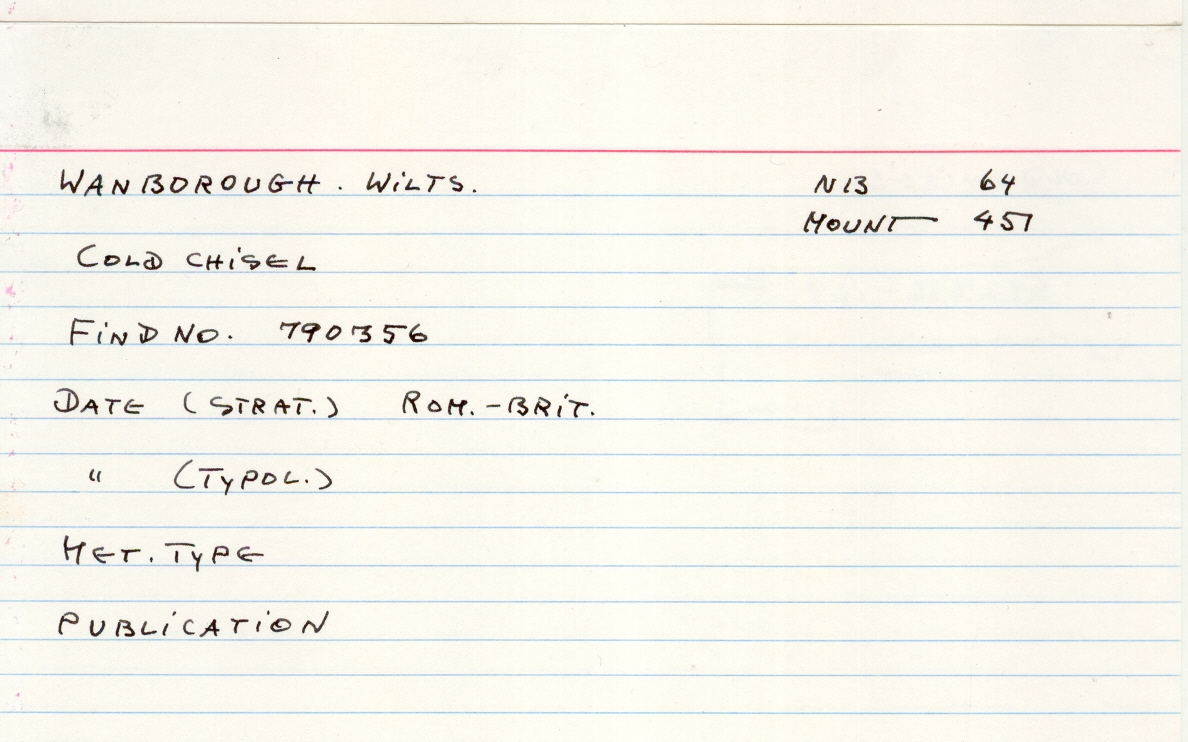 WANBOROUGH. WILTS. NB 64
MOUNT 451
COLD CHISEL
FIND NO. 790356
DATE (STRAT.) ROM.-BRIT.
" (TYPOL.)
MET. TYPE
PUBLICATION